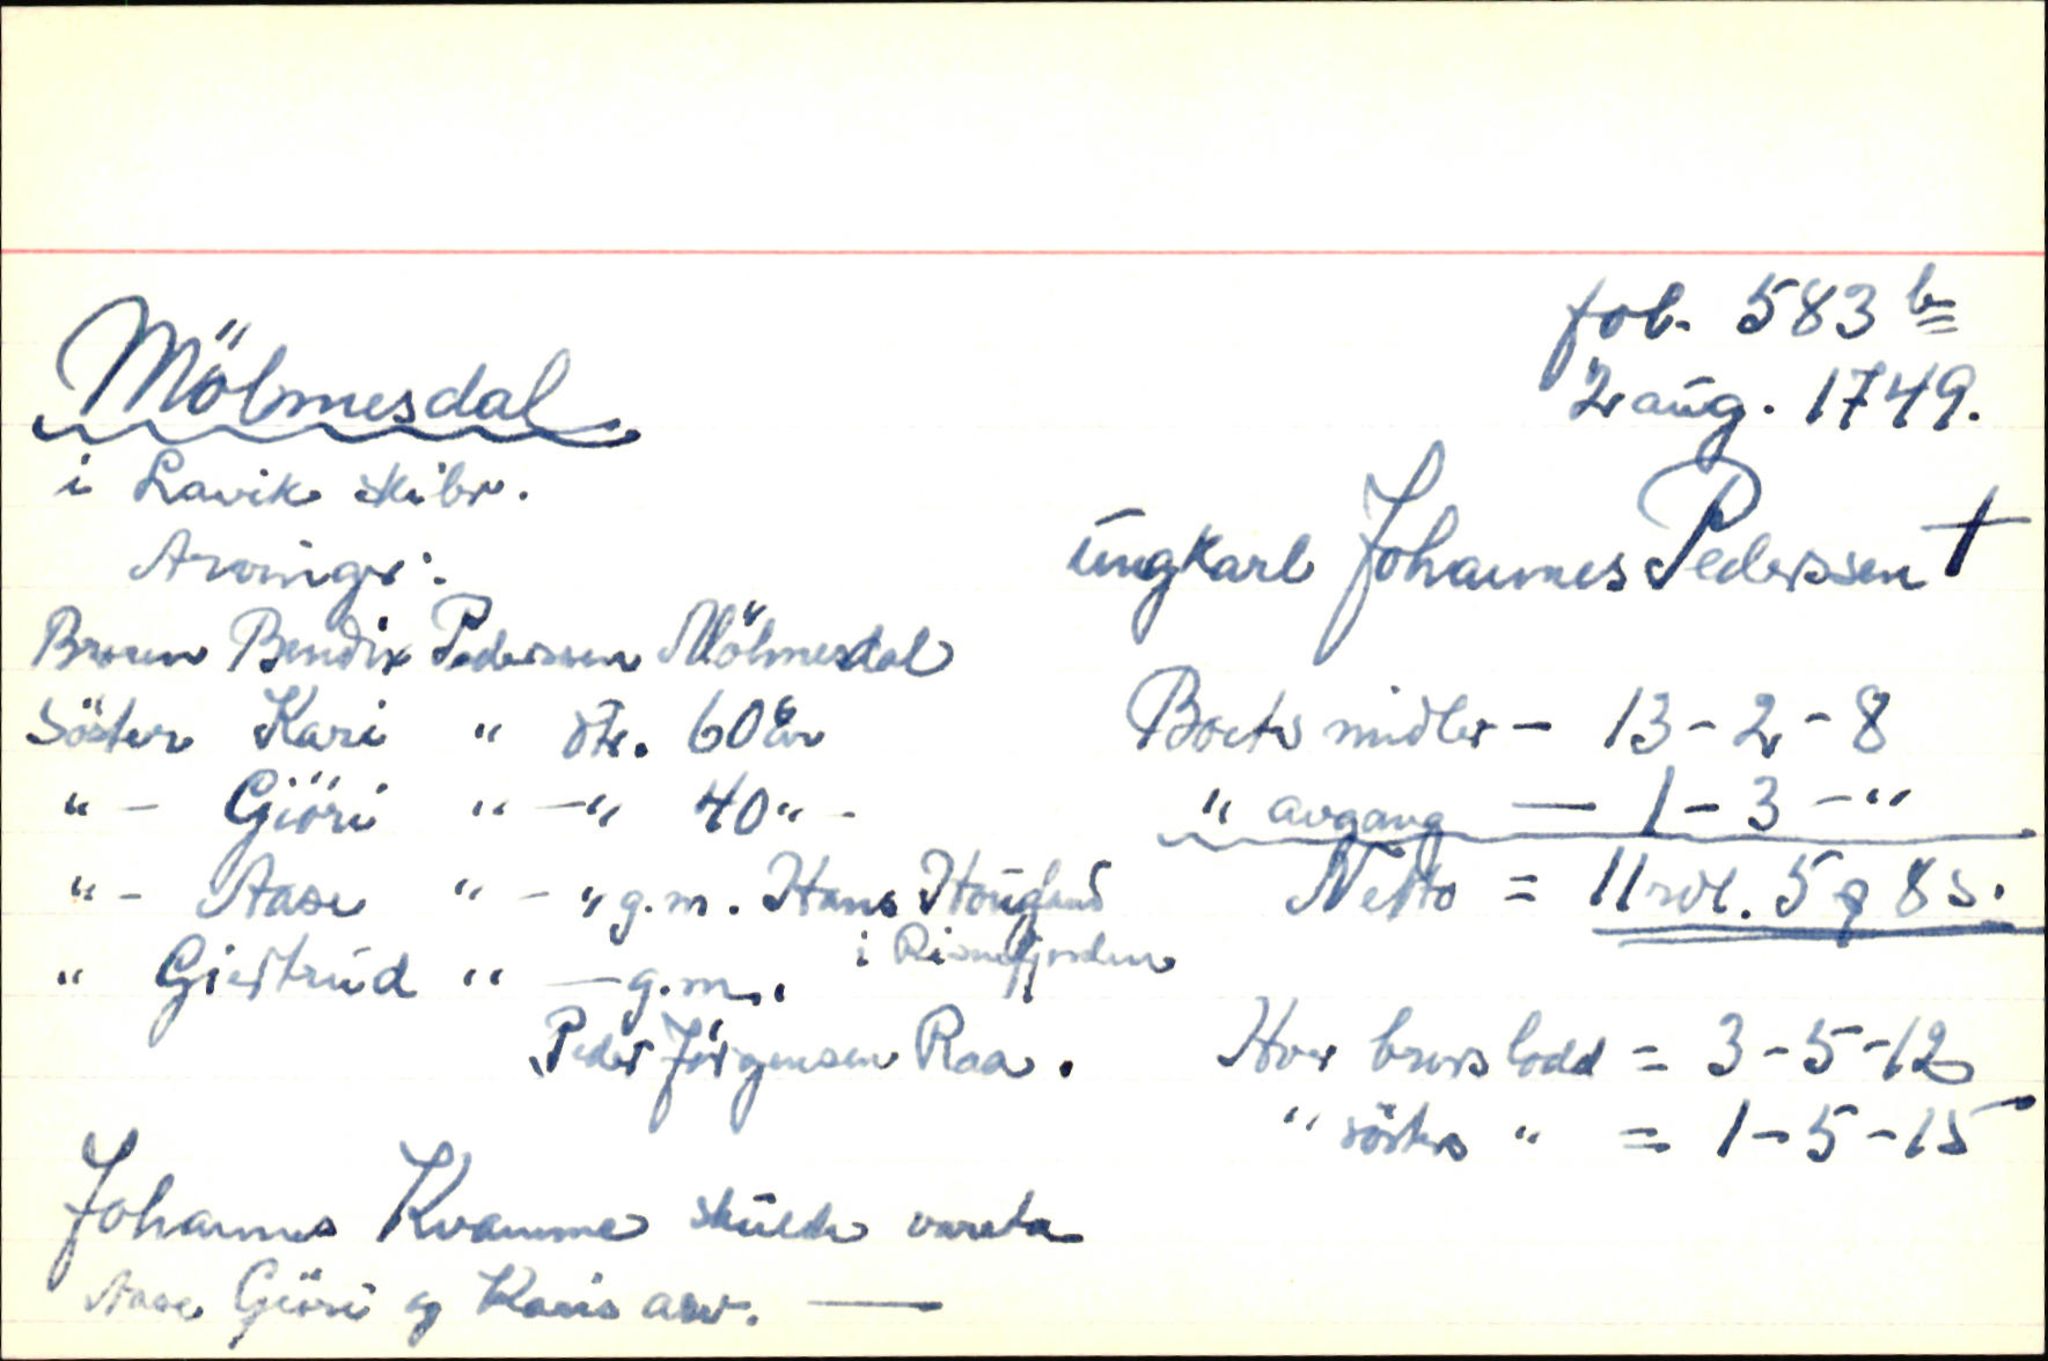 fol. 583 b
2 aug. 1749.
Mölmesdal
i Lavik skibr.
Ungkarl Johannes Pederssen †
Arvinger:
Broren Bendix Pederssen Mölmesdal
Söster Kari " dtr. 60 år
" - Gjöri " - " 40 " -
" - Aase " - " g.m. Hans Hougland
i Risnefjorden
" Giertrud " - g.m.
Peder Jörgensen Raa.
Boets midler - 13 - 2 - 8
" avgang — 1 - 3 - "
Netto = 11 rdl. 5 q 8 s.
Hver brors lodd = 3 - 5 - 12
" sösters " = 1 - 5 - 15
Johannes Kvamme skulde vareta
Aase Gjöri og Karis arv. —